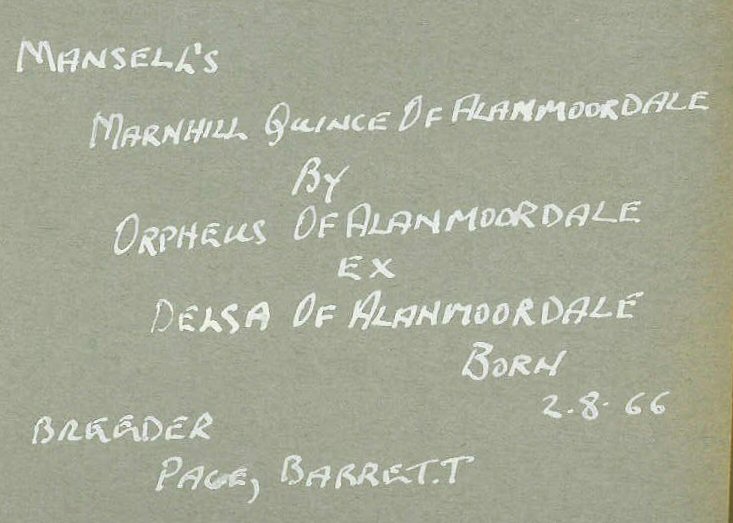 MANSELL'S
MARNHILL QUINCE OF ALANMOORDALE
BY
ORPHEUS OF ALANMOORDALE
EX
DELSA OF ALANMOORDALE
BORN
2.8.66
BREEDER
PAGE, BARRET.T